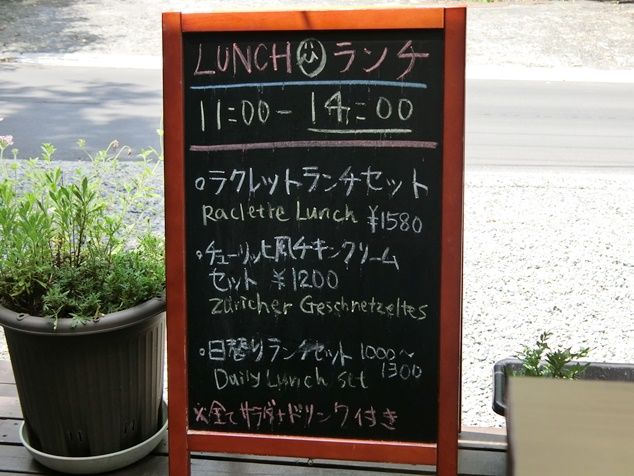 LUNCH ランチ
11:00 - 14:00
。ラクレットランチセット
Raclette Lunch ¥1580
・チューリッヒ風チキンクリーム
セット ¥1200
Züricher Geschnetzeltes
・日替りランチセット 1000〜
1300
Daily Lunch set
※全てサラダ+ドリンク付き